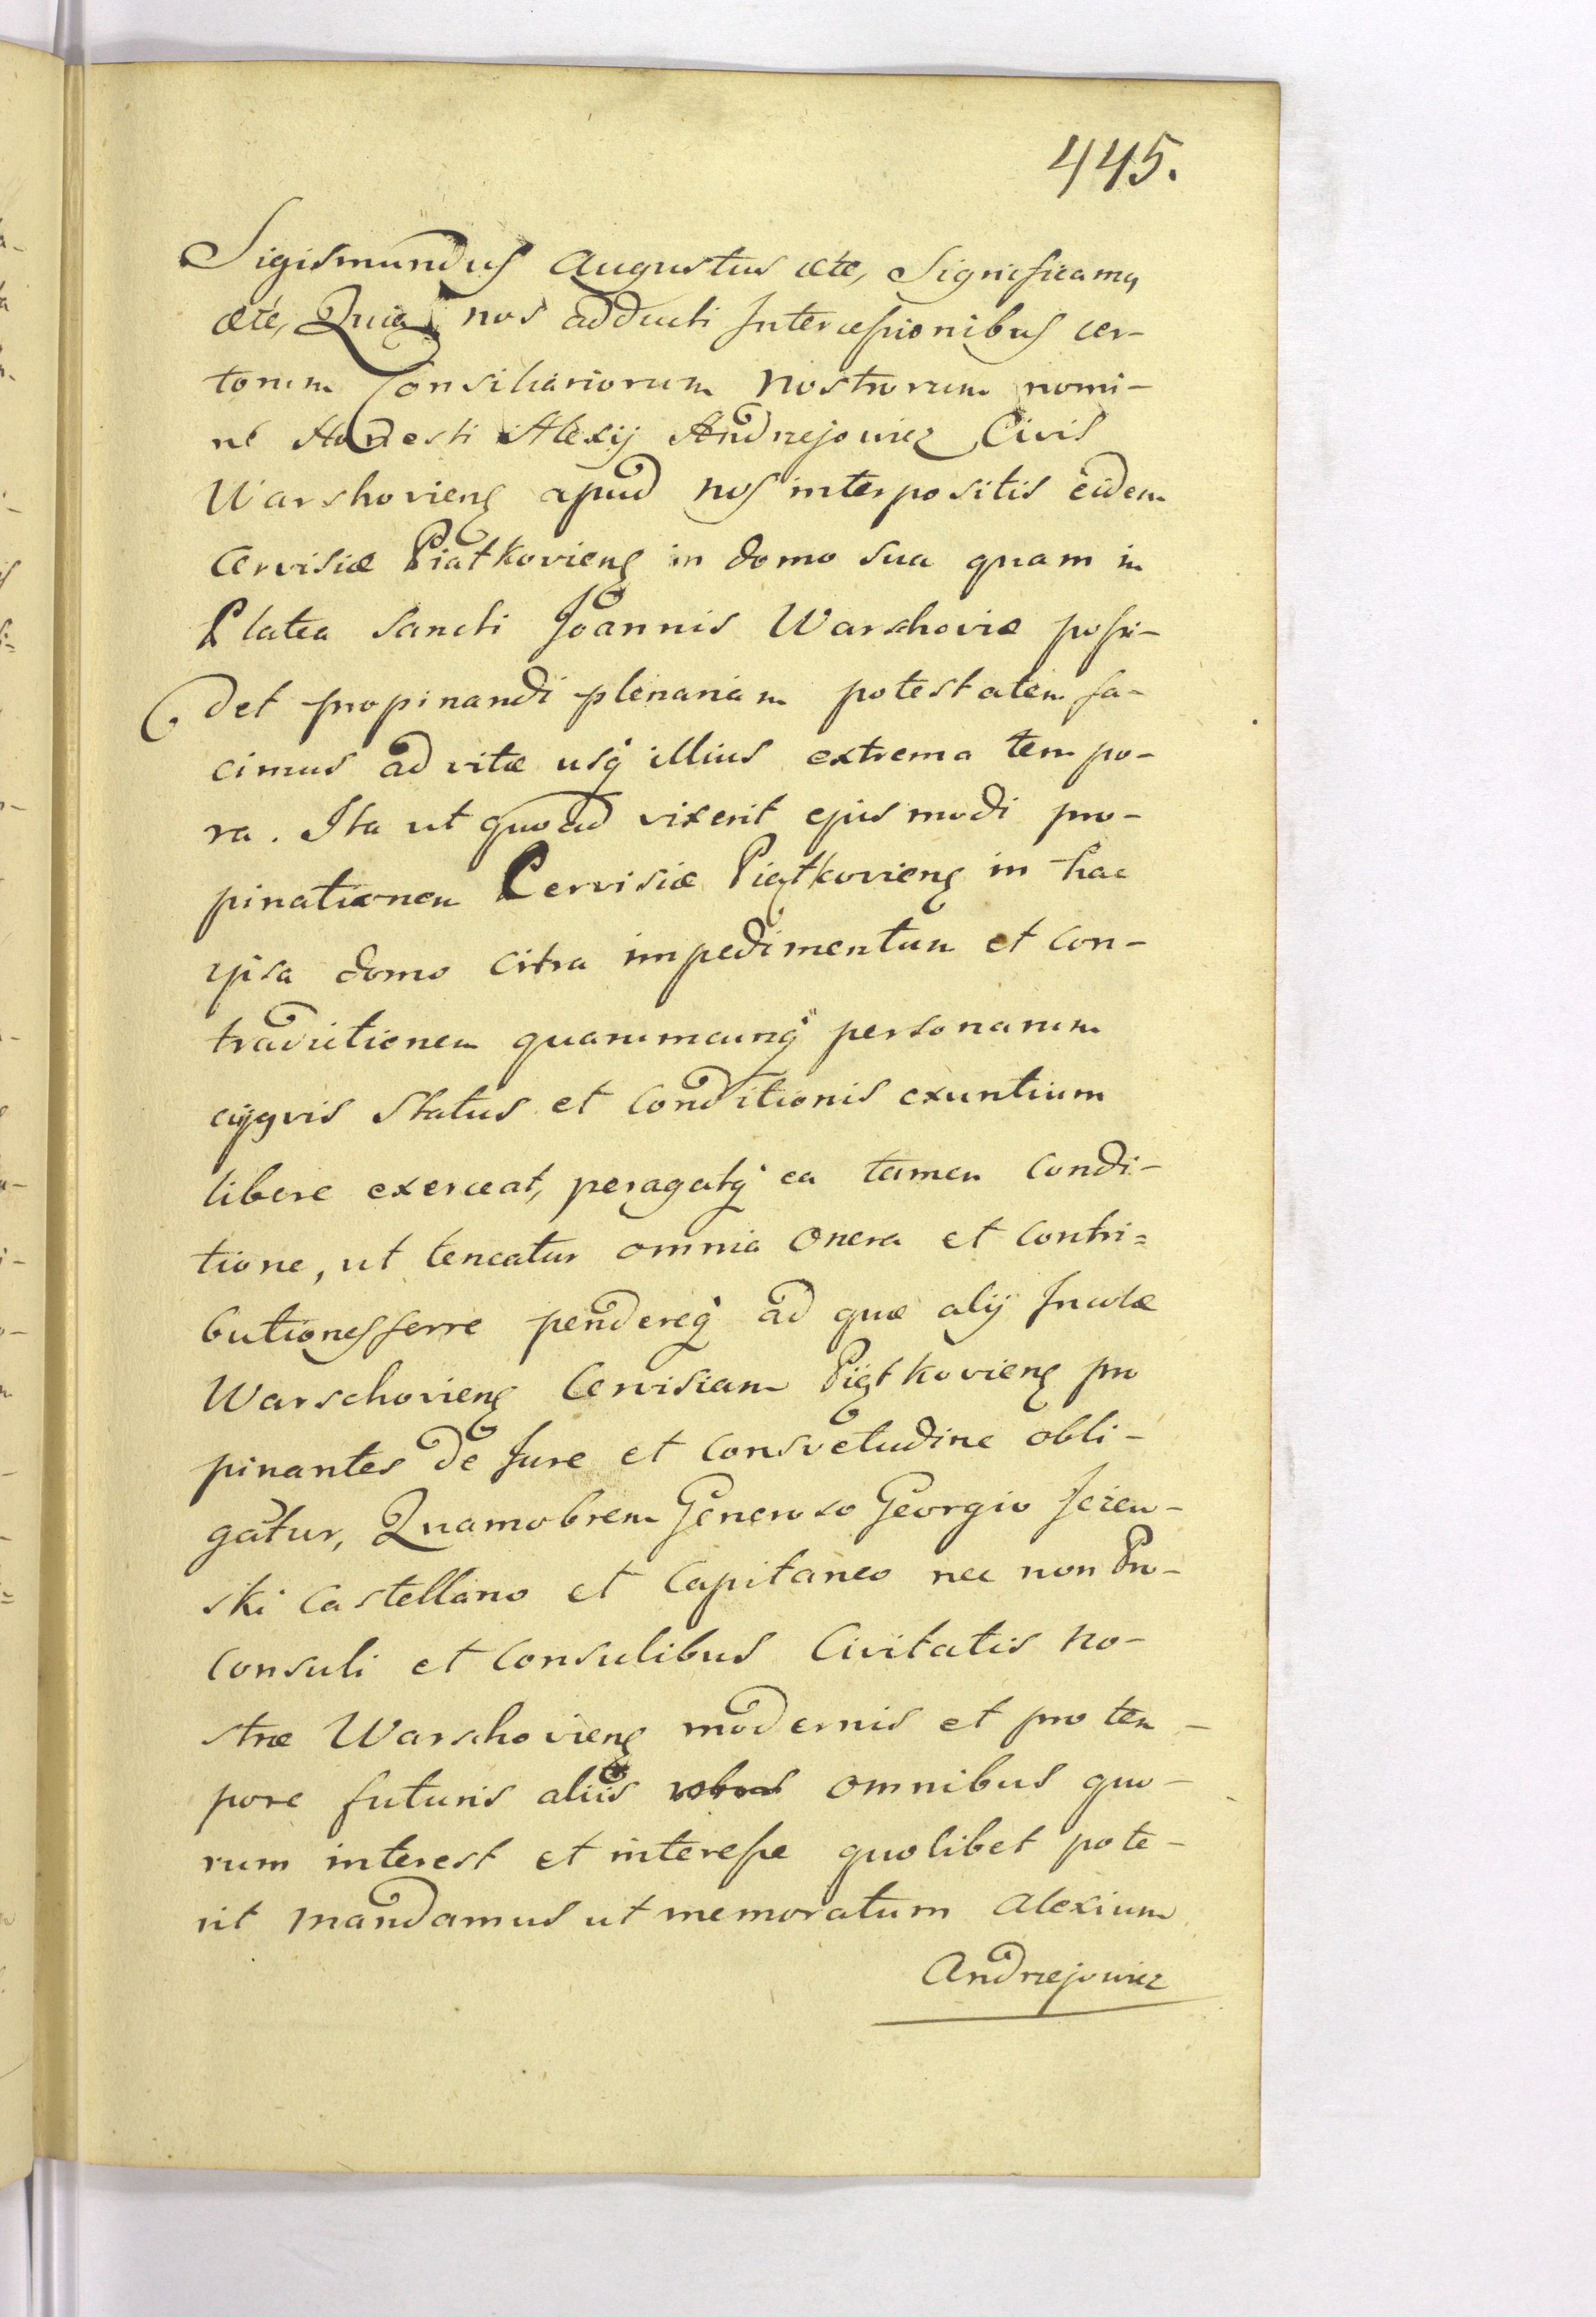 445.
Sigismundus Augustus etc, Significamq
etc, Quia nos adducti Intercessionibus cer-
torum Consiliariorum Nostrorum nomi-
ne Honesti Alexij Andrzejowicz Civis
Warshovieng apud nos interpositis eidem
Cervisiæ Piatkovieng in domo sua quam in
Platea Sancti Joannis Warschoviæ possi-
det propinandi plenariam potestatem fa-
cimus ad vitæ usq illius extrema tempo-
ra. Ita ut quoad vixerit ejusmodi pro-
pinationem Cervisiæ Piątkovieng in hac
ipsa domo citra impedimentum et con-
tradictionem quarumcunq personarum
cujqvis Status et Conditionis exuntium
libere exerceat, peragatq ea tamen Condi-
tione, ut teneatur omnia Onera et Contri=
butiones ferre pendereq ad quæ alij Incolæ
Warschovieng Cervisiam Piątkovieng pro
pinantes de Jure et Consvetudine obli-
gatur, Quamobrem Generoso Georgio Jezew-
ski Castellano et Capitaneo nec non Pro-
consuli et Consulibus Civitatis No-
stræ Warschovieng modernis et pro tem-
pore futuris aliis omnibus quo-
rum interest et interesse quolibet pote-
rit Mandamus ut memoratum Alexium
Andrzejowicz